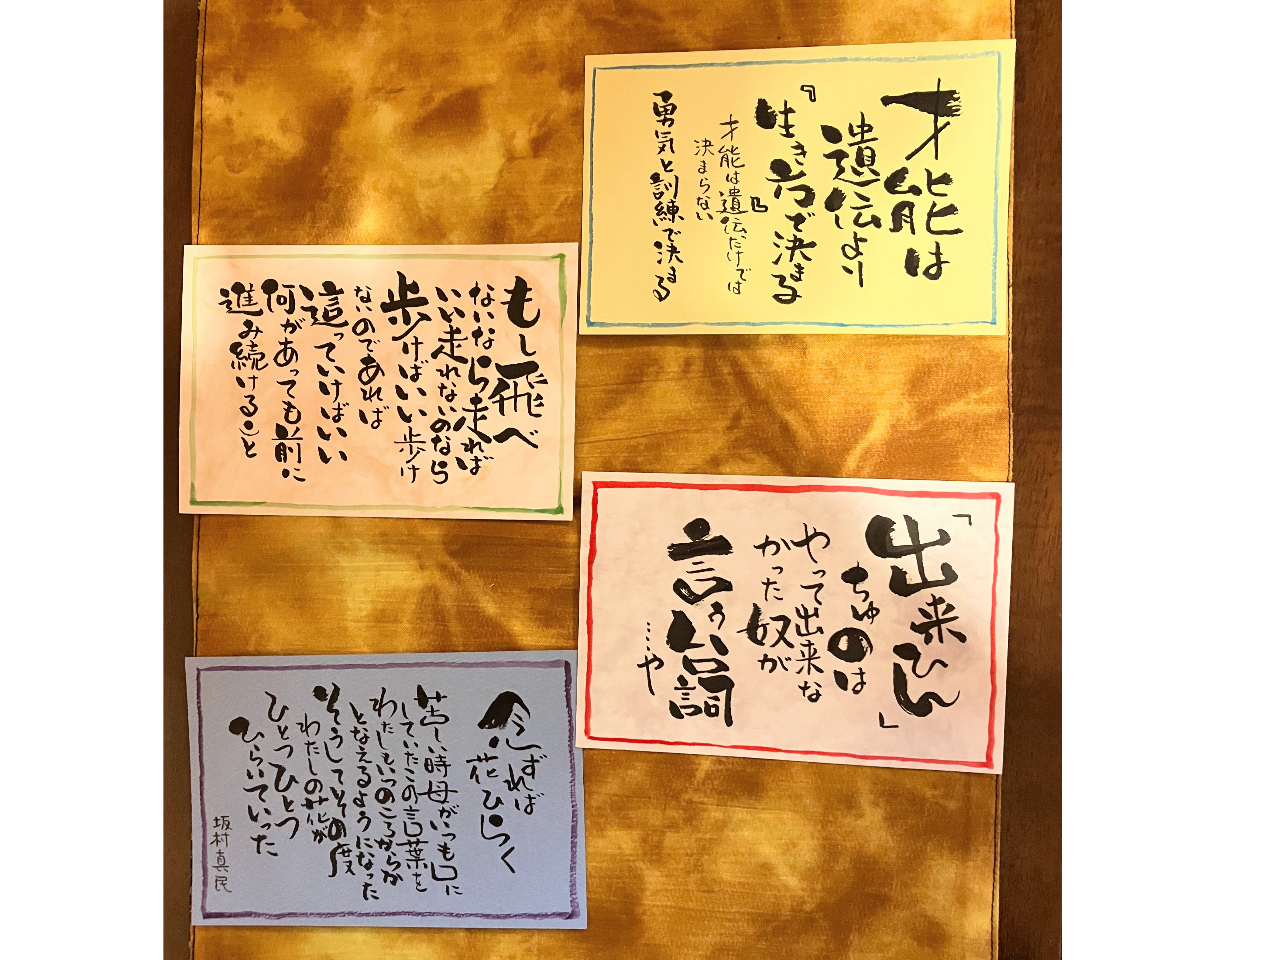 才能は
遺伝より
『生き方で決まる』
才能は遺伝だけでは
決まらない
勇気と訓練で決まる
もし飛べ
ないなら走れば
いい走れないのなら
歩けばいい歩け
ないのであれば
這っていけばいい
何があっても前に
進み続けること
「出来ひん」
ちゅのは
やって出来な
かった奴が
言う台詞
…や
念ずれば
花ひらく
苦しい時母がいつも口に
していたこの言葉を
わたしもいつのころからか
となえるようになった
そうしてその度
わたしの花が
ひとつひとつ
ひらいていった
坂村真民